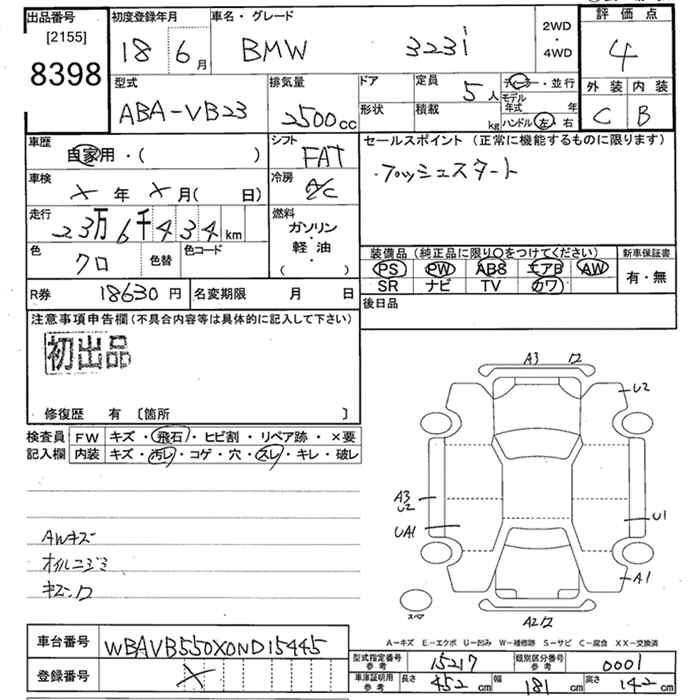 出品番号
[2155]
8398
初度登録年月
18 6月
車名・グレード
BMW 323i
2WD
・
4WD
評価点
4
型式
ABA-VB23
排気量
2500cc
ドア
形状
定員 5人
積載 kg
ディーラー・並行
モデル年式 年
ハンドル 左 右
外装 内装
C B
車歴
自家用・( )
シフト
FAT
車検
× 年 × 月( 日)
冷房
A/C
セールスポイント (正常に機能するものに限ります)
・プッシュスタート
走行
23万6千434km
燃料
ガソリン
軽・油
( ・ )
色
クロ
色替
色コード
装備品 (純正品に限り○をつけてください)
PS PW ABS エアB AW
SR ナビ TV カワ
新車保証書
有・無
R券 18630円
名変期限 月 日
後日品
注意事項申告欄(不具合内容等は具体的に記入して下さい)
初出品
修復歴 有 〔箇所 〕
検査員
記入欄
FW キズ・飛石・ヒビ割・リペア跡・×要
内装 キズ・汚レ・コゲ・穴・スレ・キレ・破レ
AWキズ
オイルニジミ
A3
U2
A3
U2
UA1
U1
A1
スペア
A2
A-キズ E-エクボ U-凹み W-補修跡 S-サビ C-腐食 XX-交換済
車台番号 WBAVB550X0ND15445
登録番号 ×
型式指定番号 参考 15217
類別区分番号 参考 0001
車庫証明用 参考 長さ 452cm 幅 181cm 高さ 142cm